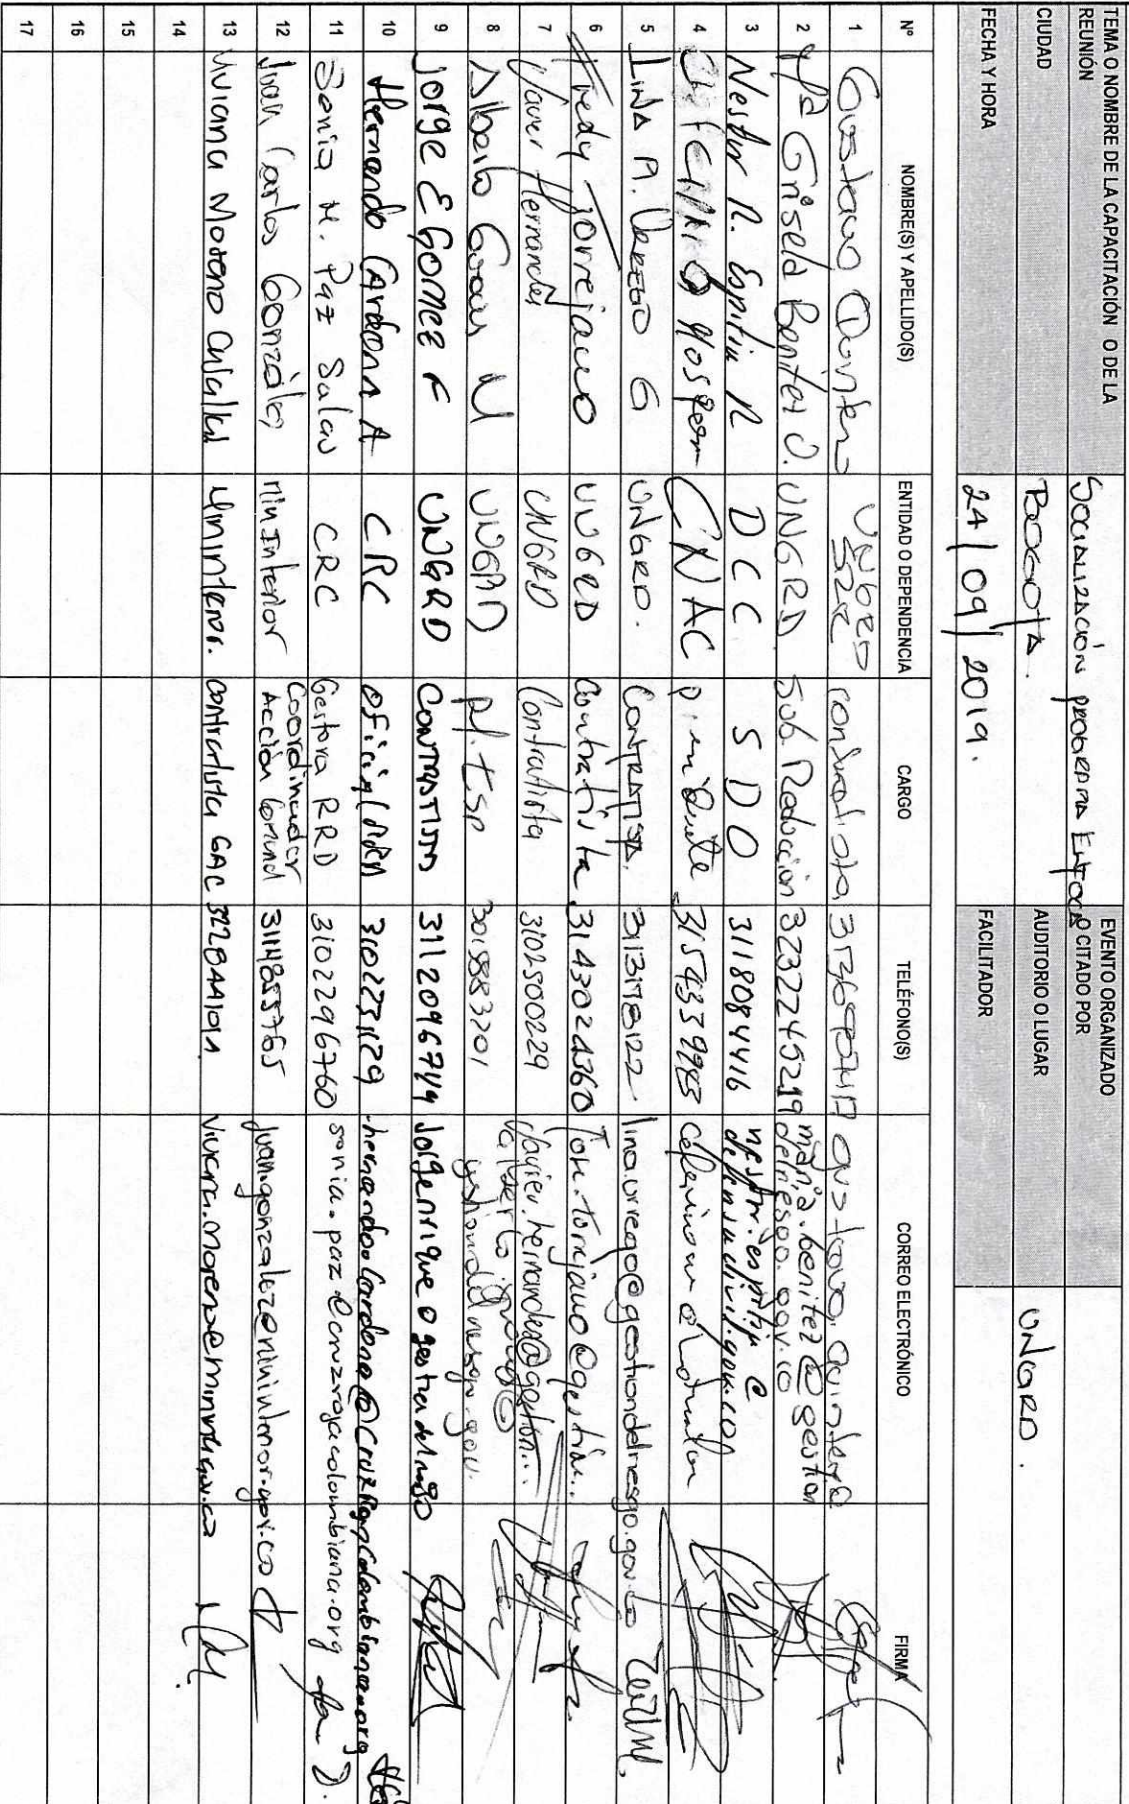 TEMA O NOMBRE DE LA CAPACITACIÓN O DE LA REUNIÓN
Socialización programa Enfoca
EVENTO ORGANIZADO O CITADO POR
CIUDAD
Bogotá.
AUDITORIO O LUGAR
UNGRD.
FECHA Y HORA
24/09/2019.
FACILITADOR
Nº NOMBRE(S) Y APELLIDO(S) ENTIDAD O DEPENDENCIA CARGO TELÉFONO(S) CORREO ELECTRÓNICO FIRMA
1 Gustavo Quintero UNGRD contratista gustavo.quintero@
2 Griseld Benitez O. UNGRD Sub Reducción 3232245219 maria.benitez@gestion
delriesgo.gov.co
3 Nestor R. Espitia R DCC SDO 3118084416 nestor.espitia@
defensacivil.gov.co
4 CNAC 3154339983
5 Lina M. Urrego G UNGRD. Contratista. 3113178122 lina.urrego@gestiondelriesgo.gov.co
6 Fredy Torrejano UNGRD Contratista 3143024360
7 Javier Hernandez UNGRD Contratista 3102500229 Javier.hernandez@gestion...
8 Alberto UNGRD Pf. Esp 3015883201
9 Jorge E Gomez F UNGRD Contratista 3112096749 Jorgenrique@gestiondelriesgo
10 Hernando Cardona A CRC Oficial 3102231129 hernando.cardona@cruzrojacolombiana.org
11 Sonia M. Paz Salas CRC Gestora RRD 3102296760 sonia.paz@cruzrojacolombiana.org
12 Juan Carlos González MinInterior Coordinador
Acción Comunal 3114855765 juan.gonzalez@mininterior.gov.co
13 Viviana Moreno Mininterior. contratista GAC 3228441011 viviana.moreno@mininterior.gov.co
14
15
16
17